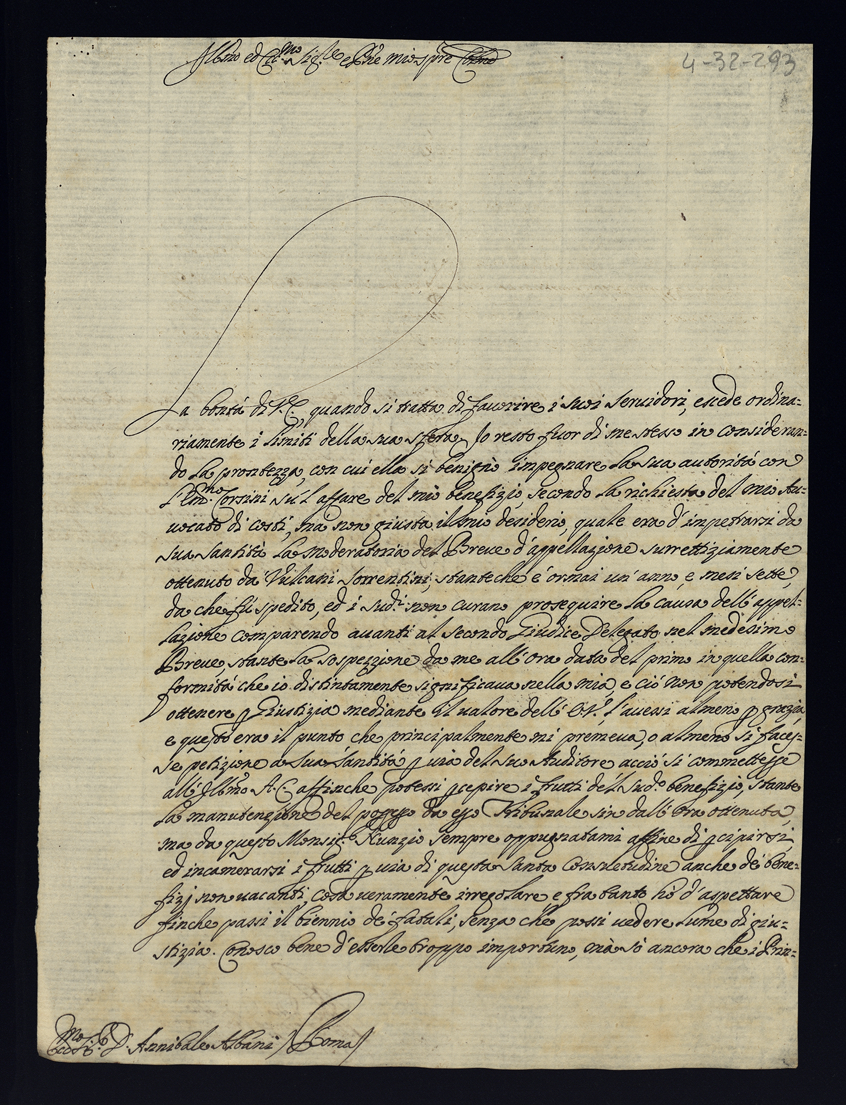 Ill.mo ed Ecc.mo Sig.re e P.rone mio sempre Colmo
4-32-293
La bontà di V.E. quando si tratta di favorire i suoi servidori, eccede ordina-
riamente i limiti della sua sfera. Io resto fuor di me stesso in consideran-
do la prontezza, con cui ella si benigiò impegnare la sua autorità con
l'Em.mo Corsini su'l affare del mio benefizio, secondo la richiesta del mio Au-
uocato di costì, mà non giusta il mio desiderio, quale era d'impetrarsi da
Sua Santità la moderatoria del Breve d'appellazione surrettiziamente
ottenuto da Vulcani Sorrentini; stanteche è ormai un'anno, e mesi sette,
da che fù spedito, ed i sud.i non curano proseguire la causa dell'appel-
lazione comparendo auanti al secondo Giudice Delegato nel medesimo
Breve stante la sospezzione da me all'ora data del primo in quella con-
formità che io distintamente significaua nella mia, e ciò non potendosi
ottenere p Giustizia mediante il valore dell'E.V. l'auessi almeno p grazia,
e questo era il punto che principalmente mi premeua, o almeno si faces-
se petizione a Sua Santità p uia del suo Auditore acciò si commettesse
all'Ill.mo A.C. affinche potessi pcepire i frutti del sud.o benefizio, stante
la manutenzione del possesso da esso Tribunale sin dall'ora ottenuta,
ma da questo Monsig.r Nunzio sempre oppugnatami affine di pcipirsi
ed incamerarsi i frutti p uia di questa Santa Consuetudine anche de' bene-
fizj non vacanti, cosa veramente irregolare, e fra tanto hò d'aspettare
finche passi il biennio de' fatali, senza che possi vedere lume di giu-
stizia. Conosco bene d'esserle troppo importuno, mà sò ancora che i Prin-
D. Annibale Albani Roma